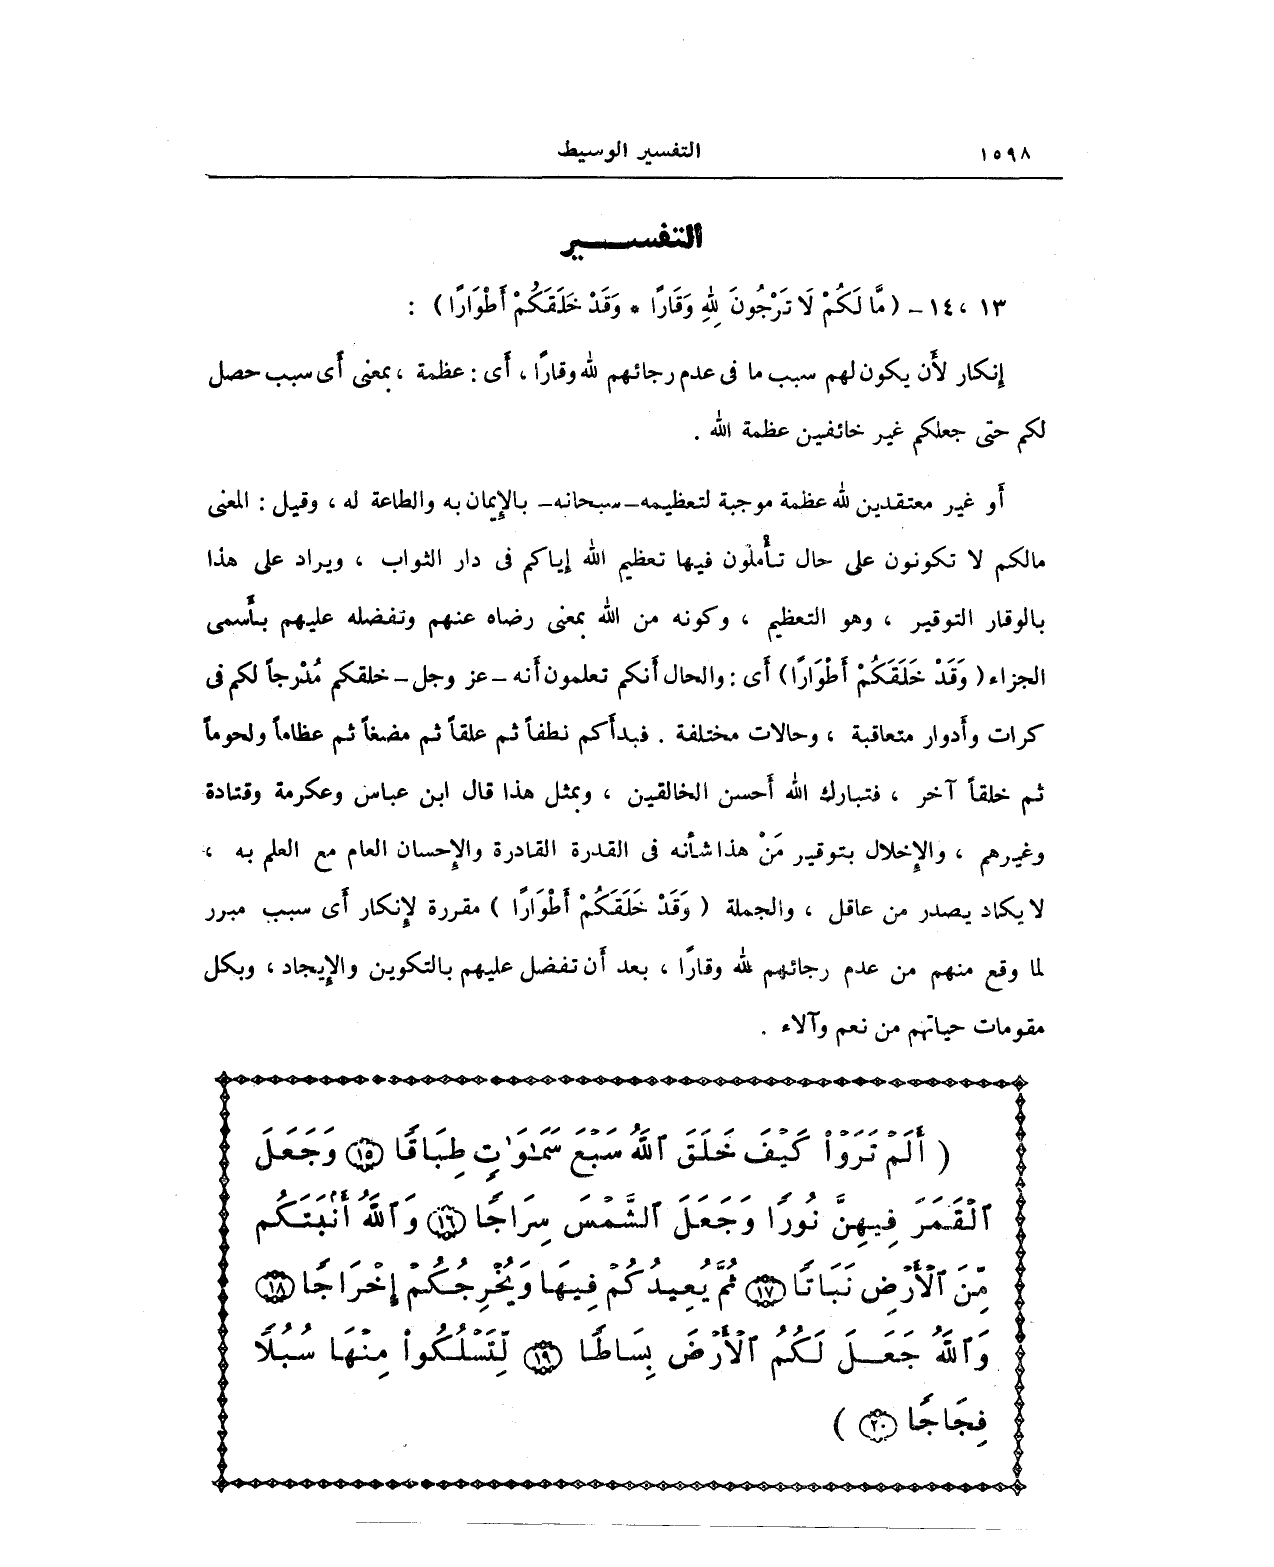 ١٥٩٨ التفسير الوسيط
التفســـــير
١٣ ، ١٤ – ( مَّا لَكُمْ لَا تَرْجُونَ لِلّٰهِ وَقَارًا * وَقَدْ خَلَقَكُمْ أَطْوَارًا ) :
إنكار لأن يكون لهم سبب ما فى عدم رجائهم لله وقارًا ، أى : عظمة ، بمعنى أى سبب حصل
لكم حتى جعلكم غير خائفين عظمة الله .
أو غير معتقدين لله عظمة موجبة لتعظيمه – سبحانه – بالإيمان به والطاعة له ، وقيل : المعنى
مالكم لا تكونون على حال تأملون فيها تعظيم الله إياكم فى دار الثواب ، ويراد على هذا
بالوقار التوقير ، وهو التعظيم ، وكونه من الله بمعنى رضاه عنهم وتفضله عليهم بأسمى
الجزاء ( وَقَدْ خَلَقَكُمْ أَطْوَارًا ) أى : والحال أنكم تعلمون أنه – عز وجل – خلقكم مُدْرجاً لكم فى
كرات وأدوار متعاقبة ، وحالات مختلفة . فبدأكم نطفاً ثم علقاً ثم مضغاً ثم عظاماً ولحوماً
ثم خلقاً آخر ، فتبارك الله أحسن الخالقين ، وبمثل هذا قال ابن عباس وعكرمة وقتادة
وغيرهم ، والإخلال بتوقير مَنْ هذا شأنه فى القدرة القادرة والإحسان العام مع العلم به ،
لا يكاد يصدر من عاقل ، والجملة ( وَقَدْ خَلَقَكُمْ أَطْوَارًا ) مقررة لإنكار أى سبب مبرر
لما وقع منهم من عدم رجائهم لله وقارًا ، بعد أن تفضل عليهم بالتكوين والإيجاد ، وبكل
مقومات حياتهم من نعم وآلاء .
( أَلَمْ تَرَوْا۟ كَيْفَ خَلَقَ ٱللَّهُ سَبْعَ سَمَٰوَٰتٍ طِبَاقًا ١٥ وَجَعَلَ
ٱلْقَمَرَ فِيهِنَّ نُورًا وَجَعَلَ ٱلشَّمْسَ سِرَاجًا ١٦ وَٱللَّهُ أَنۢبَتَكُم
مِّنَ ٱلْأَرْضِ نَبَاتًا ١٧ ثُمَّ يُعِيدُكُمْ فِيهَا وَيُخْرِجُكُمْ إِخْرَاجًا ١٨
وَٱللَّهُ جَعَلَ لَكُمُ ٱلْأَرْضَ بِسَاطًا ١٩ لِّتَسْلُكُوا۟ مِنْهَا سُبُلًا
فِجَاجًا ٢٠ )